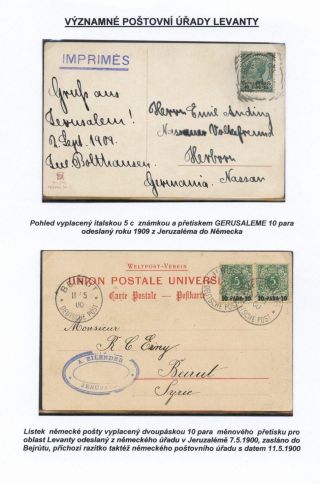 VÝZNAMNÉ POŠTOVNÍ ÚŘADY LEVANTY
IMPRIMÉS
Gruß aus
Jerusalem!
2. Sept. 1909.
Herrn Emil Anding
Nassauer Volksfreund
Herborn
Germania. Nassau
Pohled vyplacený italskou 5 c známkou a přetiskem GERUSALEME 10 para
odeslaný roku 1909 z Jeruzaléma do Německa
WELTPOST-VEREIN
UNION POSTALE UNIVERS
Carte Postale - Postkarte
11/5
00
DEUTSCHE POST
10 PARA 10
10 PARA 10
Monsieur
Beirut
Syrie
Lístek německé pošty vyplacený dvoupáskou 10 para měnového přetisku pro
oblast Levanty odeslaný z německého úřadu v Jeruzalémě 7.5.1900, zasláno do
Bejrútu, příchozí razítko taktéž německého poštovního úřadu s datem 11.5.1900